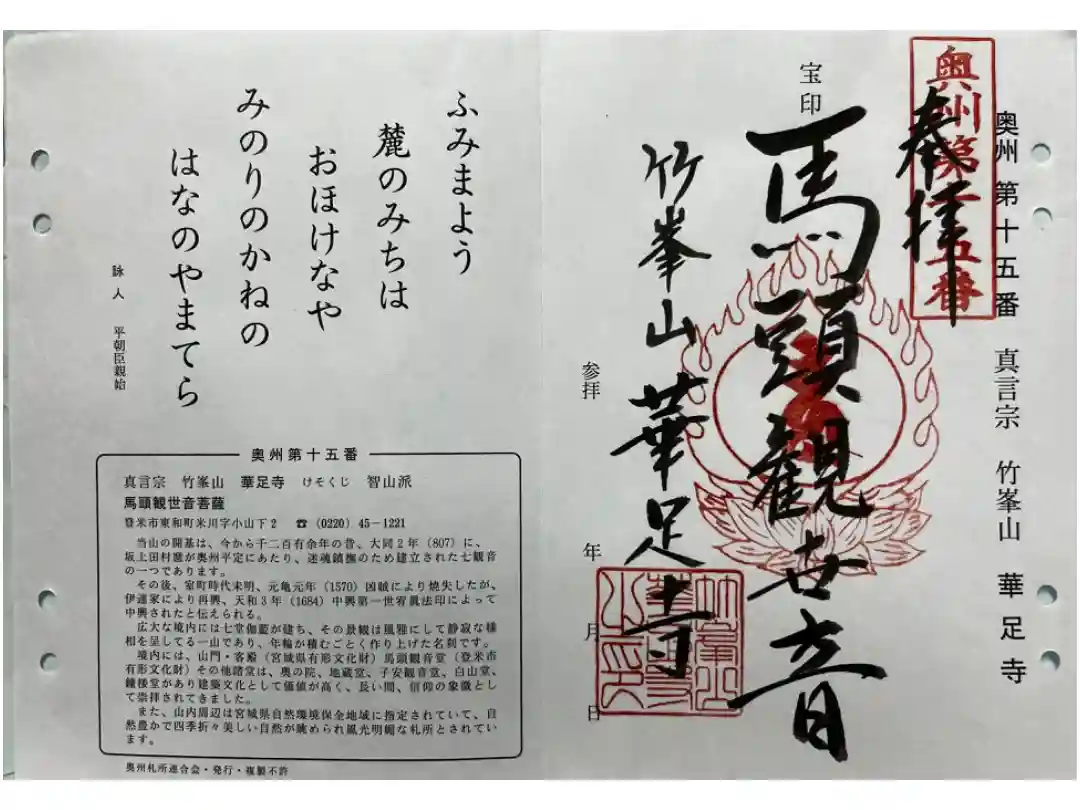 奥州 第十五番 真言宗 竹峯山 華足寺
奥州第十五番
奉拝
宝印
馬頭觀世音
竹峯山 華足寺
参拝 年 月 日
ふみまよう
麓のみちは
おほけなや
みのりのかねの
はなのやまてら
詠人 平朝臣親始
奥州第十五番
真言宗 竹峯山 華足寺 けそくじ 智山派
馬頭観世音菩薩
登米市東和町米川字小山下2 ☎(0220)45-1221
当山の開基は、今から千二百有余年の昔、大同2年(807)に、
坂上田村麿が奥州平定にあたり、迷魂鎮撫のため建立された七観音
の一つであります。
その後、室町時代末明、元亀元年(1570)兇賊により焼失したが、
伊達家により再興、天和3年(1684)中興第一世宥眞法印によって
中興されたと伝えられる。
広大な境内には七堂伽藍が建ち、その景観は風雅にして静寂な様
相を呈してる一山であり、年輪が積むごとく作り上げた名刹です。
境内には、山門・客殿(宮城県有形文化財)馬頭観音堂(登米市
有形文化財)その他諸堂は、奥の院、地蔵堂、子安観音堂、白山堂、
鐘楼堂があり建築文化として価値が高く、長い間、信仰の象徴とし
て崇拝されてきました。
また、山内周辺は宮城県自然環境保全地域に指定されていて、自
然豊かで四季折々美しい自然が眺められ風光明媚な札所とされてい
ます。
奥州札所連合会・発行・複製不許